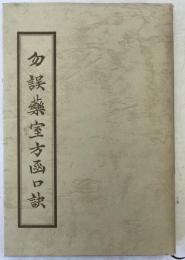 勿誤藥室方函口訣